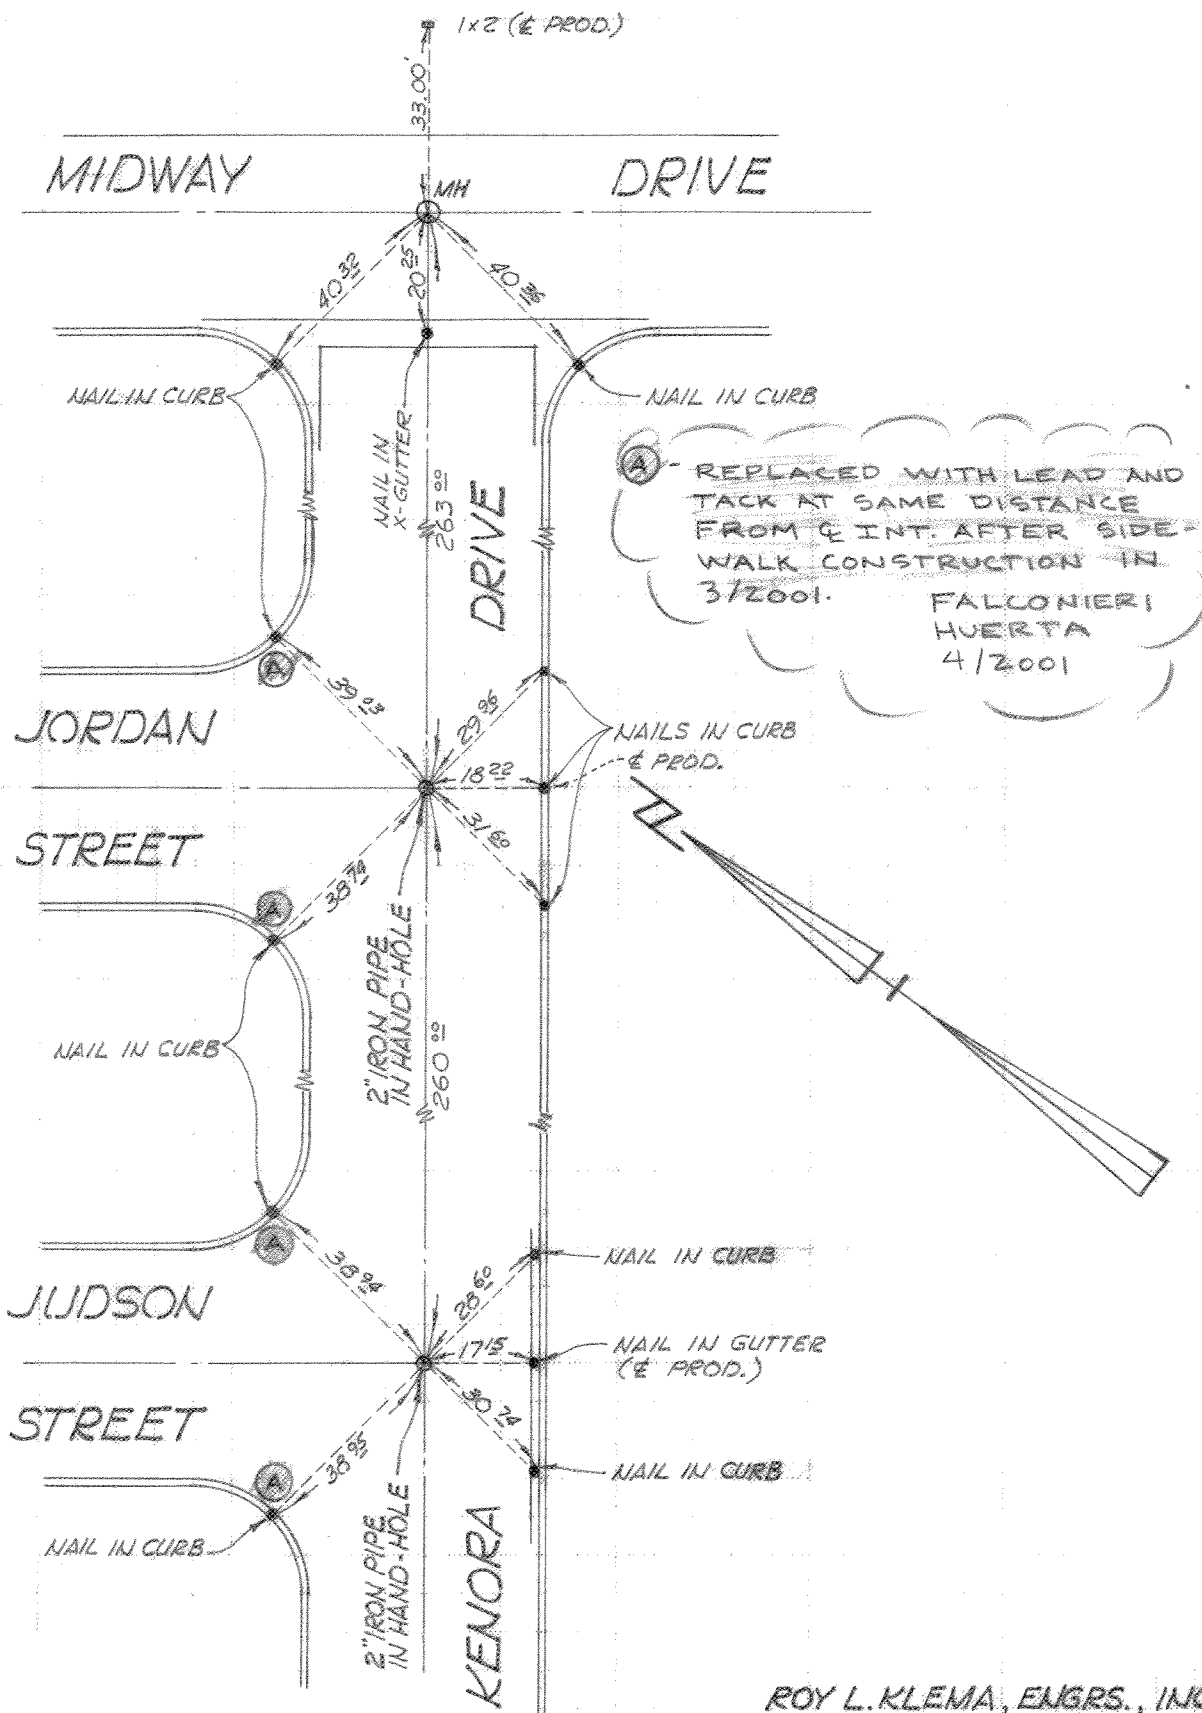 1x2 (℄ PROD.)
33.00'
MIDWAY DRIVE
MH
40 32
20 25
40 36
NAIL IN CURB
NAIL IN CURB
NAIL IN
X-GUTTER
263 00
DRIVE
A - REPLACED WITH LEAD AND
TACK AT SAME DISTANCE
FROM ℄ INT. AFTER SIDE-
WALK CONSTRUCTION IN
3/2001.
FALCONIERI
HUERTA
4/2001
A
39 03
29 96
JORDAN
NAILS IN CURB
℄ PROD.
18 22
31 60
STREET
38 74
A
2" IRON PIPE
IN HAND-HOLE
260 00
NAIL IN CURB
N
A
38 94
28 60
NAIL IN CURB
JUDSON
17 15
NAIL IN GUTTER
(℄ PROD.)
30 74
STREET
38 95
A
NAIL IN CURB
NAIL IN CURB
2" IRON PIPE
IN HAND-HOLE
KENORA
ROY L. KLEMA, ENGRS., INC